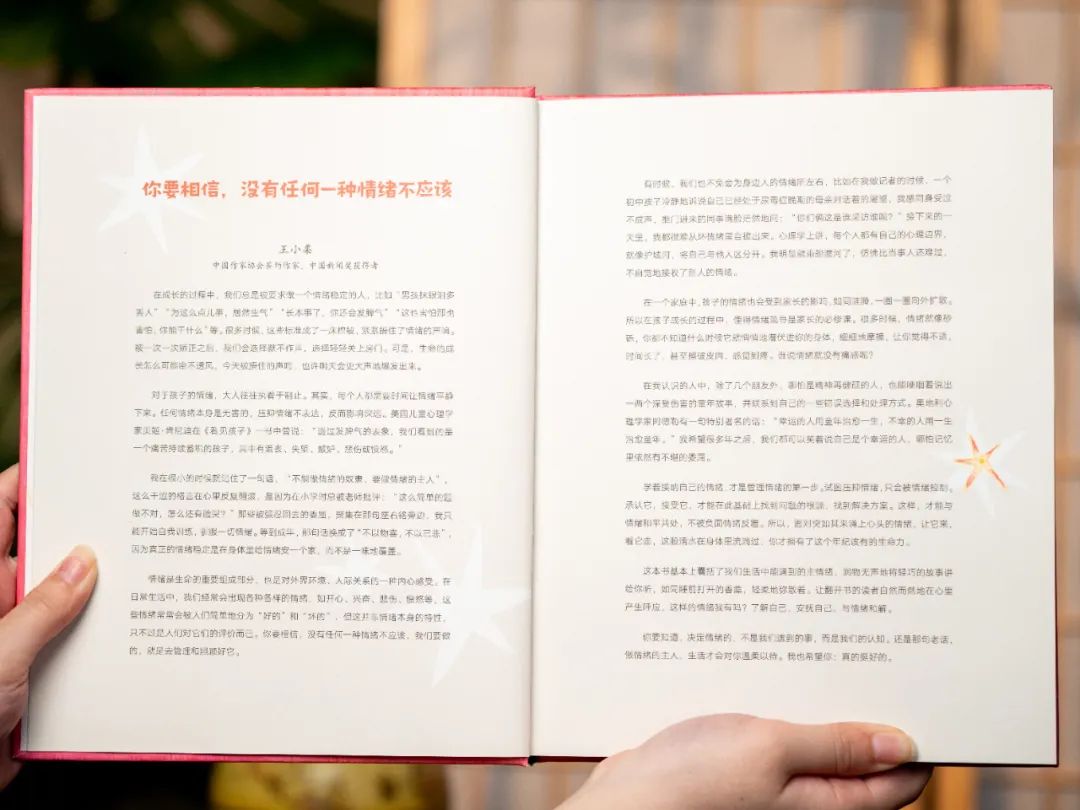 你要相信，没有任何一种情绪不应该
王小柔
中国作家协会签约作家、中国新闻奖获得者
在成长的过程中，我们总是被要求做一个情绪稳定的人，比如“男孩抹眼泪多
丢人”“为这么点儿事，居然生气”“长本事了，你还会发脾气”“这也害怕那也
害怕，你能干什么”等。很多时候，这些标准成了一床棉被，紧紧捂住了情绪的声响。
被一次一次矫正之后，我们会选择默不作声，选择轻轻关上房门。可是，生命的成
长怎么可能密不透风，今天被捂住的声响，也许明天会更大声地爆发出来。
对于孩子的情绪，大人往往执着于制止。其实，每个人都需要时间让情绪平静
下来。任何情绪本身是无害的，压抑情绪不表达，反而影响深远。美国儿童心理学
家贝姬·肯尼迪在《看见孩子》一书中曾说：“透过发脾气的表象，我们看到的是
一个痛苦持续蓄积的孩子，其中有沮丧、失望、嫉妒、悲伤或愤怒。”
我在很小的时候就记住了一句话，“不做情绪的奴隶，要做情绪的主人”，
这么干涩的格言在心里反复翻滚，是因为在小学时总被老师批评：“这么简单的题
做不对，怎么还有脸哭？”那些被强忍回去的委屈，聚集在那句座右铭旁边，我只
能开始自我训练，驯服一切情绪。等到成年，那句话换成了“不以物喜，不以己悲”，
因为真正的情绪稳定是在身体里给情绪安一个家，而不是一味地覆盖。
情绪是生命的重要组成部分，也是对外界环境、人际关系的一种内心感受。在
日常生活中，我们经常会出现各种各样的情绪，如开心、兴奋、悲伤、愤怒等，这
些情绪常常会被人们简单地分为“好的”和“坏的”，但这并非情绪本身的特性，
只不过是人们对它们的评价而已。你要相信，没有任何一种情绪不应该，我们要做
的，就是去管理和照顾好它。
有时候，我们也不免会为身边人的情绪所左右，比如在我做记者的时候，一个
初中孩子冷静地诉说自己已经处于尿毒症晚期的母亲对活着的渴望，我感同身受泣
不成声，推门进来的同事满脸茫然地问：“你们俩这是谁采访谁呢？”接下来的一
天里，我都很难从坏情绪里自拔出来。心理学上讲，每个人都有自己的心理边界，
就像护城河，将自己与他人区分开。我明显就乘船渡河了，仿佛比当事人还难过，
不自觉地接收了别人的情绪。
在一个家庭中，孩子的情绪也会受到家长的影响，如同涟漪，一圈一圈向外扩散。
所以在孩子成长的过程中，懂得情绪疏导是家长的必修课。很多时候，情绪就像砂
砾，你都不知道什么时候它就悄悄地潜伏进你的身体，细细地摩擦，让你觉得不适，
时间长了，甚至磨破皮肉，感觉到疼。谁说情绪就没有痛感呢？
在我认识的人中，除了几个朋友外，哪怕是精神再健硕的人，也能哽咽着说出
一两个深受伤害的童年故事，并联系到自己的一些错误选择和处理方式。奥地利心
理学家阿德勒有一句特别著名的话：“幸运的人用童年治愈一生，不幸的人用一生
治愈童年。”我希望很多年之后，我们都可以笑着说自己是个幸运的人，哪怕记忆
里依然有不堪的委屈。
学着接纳自己的情绪，才是管理情绪的第一步。试图压抑情绪，只会被情绪控制。
承认它，接受它，才能在此基础上找到问题的根源，找到解决方案。这样，才能与
情绪和平共处，不被负面情绪反噬。所以，面对突如其来涌上心头的情绪，让它来，
看它走，这股清水在身体里流淌过，你才拥有了这个年纪该有的生命力。
这本书基本上囊括了我们生活中能遇到的主情绪，润物无声地将轻巧的故事讲
给你听，如同睡前打开的香薰，轻柔地弥散着。让翻开书的读者自然而然地在心里
产生呼应，这样的情绪我有吗？了解自己，安抚自己，与情绪和解。
你要知道，决定情绪的，不是我们遇到的事，而是我们的认知。还是那句老话，
做情绪的主人，生活才会对你温柔以待。我也希望你：真的挺好的。